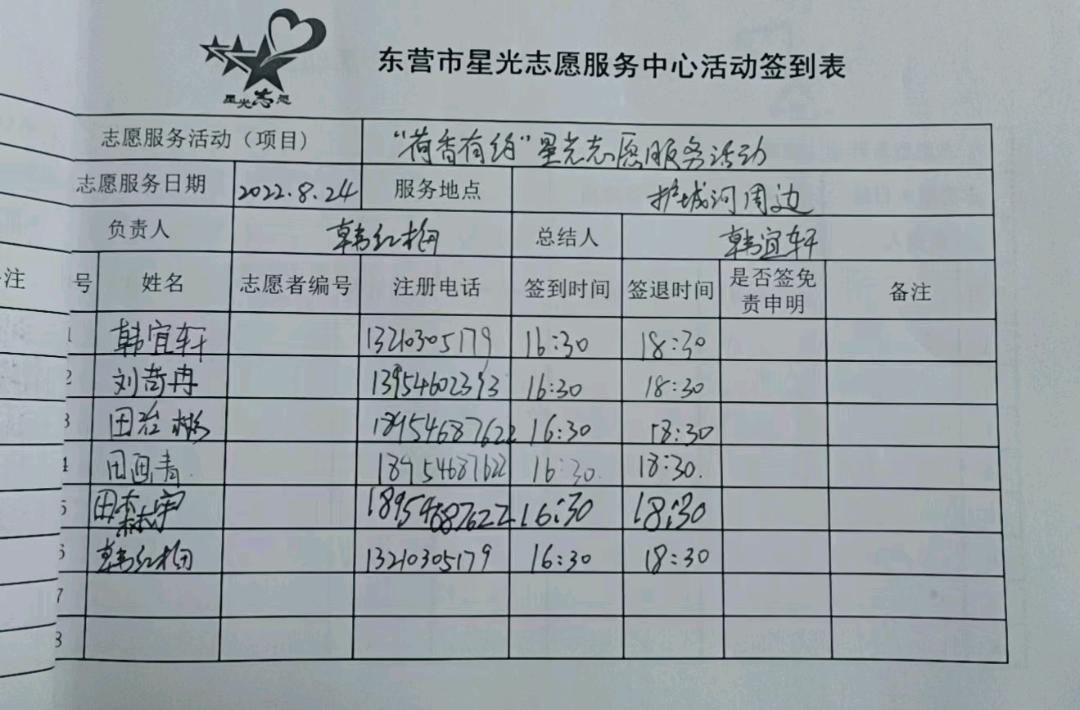 星光志愿
东营市星光志愿服务中心活动签到表
志愿服务活动（项目） “荷香有约”星光志愿服务活动
志愿服务日期 2022.8.24 服务地点 护城河周边
负责人 韩红梅 总结人 韩宜轩
注
号 姓名 志愿者编号 注册电话 签到时间 签退时间 是否签免责申明 备注
1 韩宜轩 13210305179 16:30 18:30
2 刘奇冉 13954602393 16:30 18:30
3 田治彬 18954687622 16:30 18:30
4 田画青 18954687622 16:30 18:30
5 田森宇 18954687622 16:30 18:30
6 韩红梅 13210305179 16:30 18:30
7
8